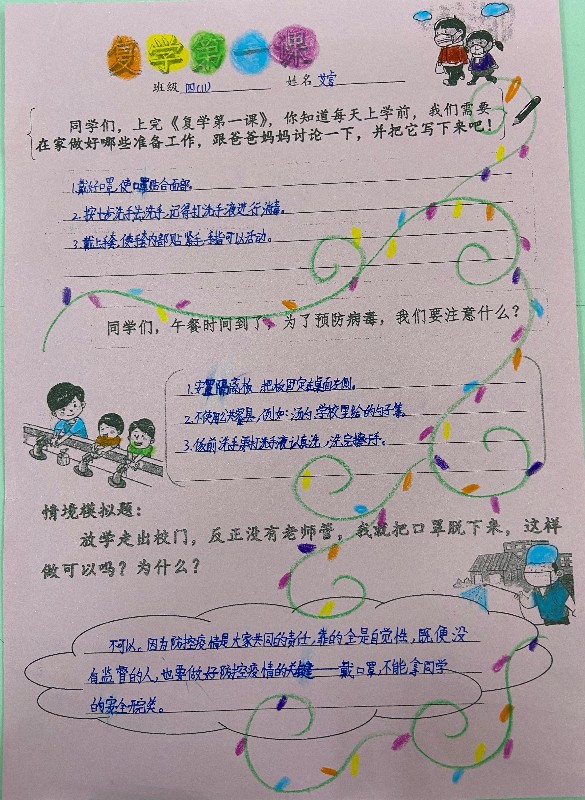 复学第一课
班级 四(1) 姓名 艾睿
同学们，上完《复学第一课》，你知道每天上学前，我们需要
在家做好哪些准备工作，跟爸爸妈妈讨论一下，并把它写下来吧！
1.戴好口罩,使口罩贴合面部。
2.按七步洗手法洗手,记得打洗手液进行消毒。
3.戴上手套,使手套内部贴紧手,手指可以活动。
同学们，午餐时间到了，为了预防病毒，我们要注意什么？
1.安置隔离板,把板固定在桌面左侧。
2.不使用公共餐具,例如:汤勺,学校里给的勺子等。
3.饭前洗手,要打洗手液认真洗,洗完擦干手。
情境模拟题：
放学走出校门，反正没有老师管，我就把口罩脱下来，这样
做可以吗？为什么？
不可以。因为防控疫情是大家共同的责任,靠的全是自觉性,既便没
有监督的人,也要做好防控疫情的关键——戴口罩,不能拿同学
的安全开玩笑。